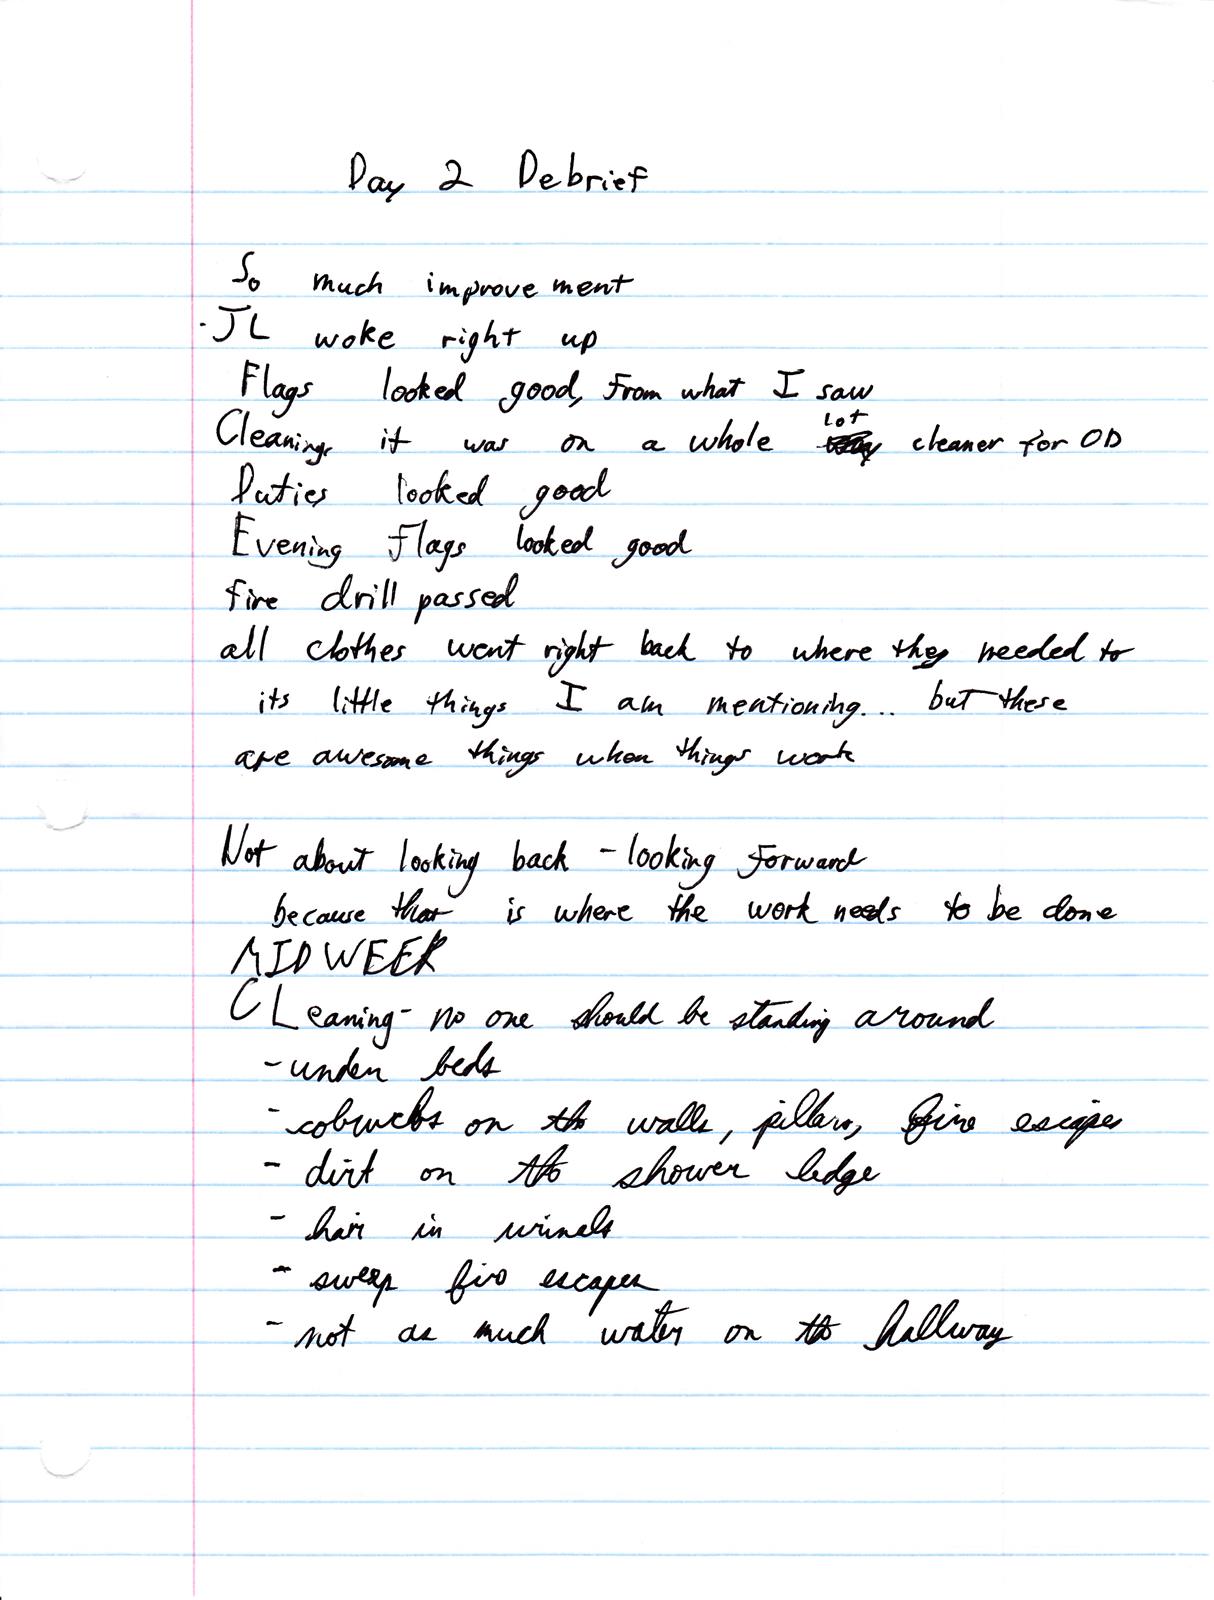 Day 2 Debrief
So much improvement
·JL woke right up
Flags looked good, from what I saw
Cleaning, it was on a whole lot cleaner for OD
Duties looked good
Evening flags looked good
fire drill passed
all clothes went right back to where they needed to
its little things I am mentioning... but these
are awesome things when things work
Not about looking back - looking forward
because that is where the work needs to be done
MIDWEEK
CLeaning - no one should be standing around
- under beds
- cobwebs on the walls, pillars, fire escapes
- dirt on the shower ledge
- hair in urinals
- sweep fire escapes
- not as much water on the hallway